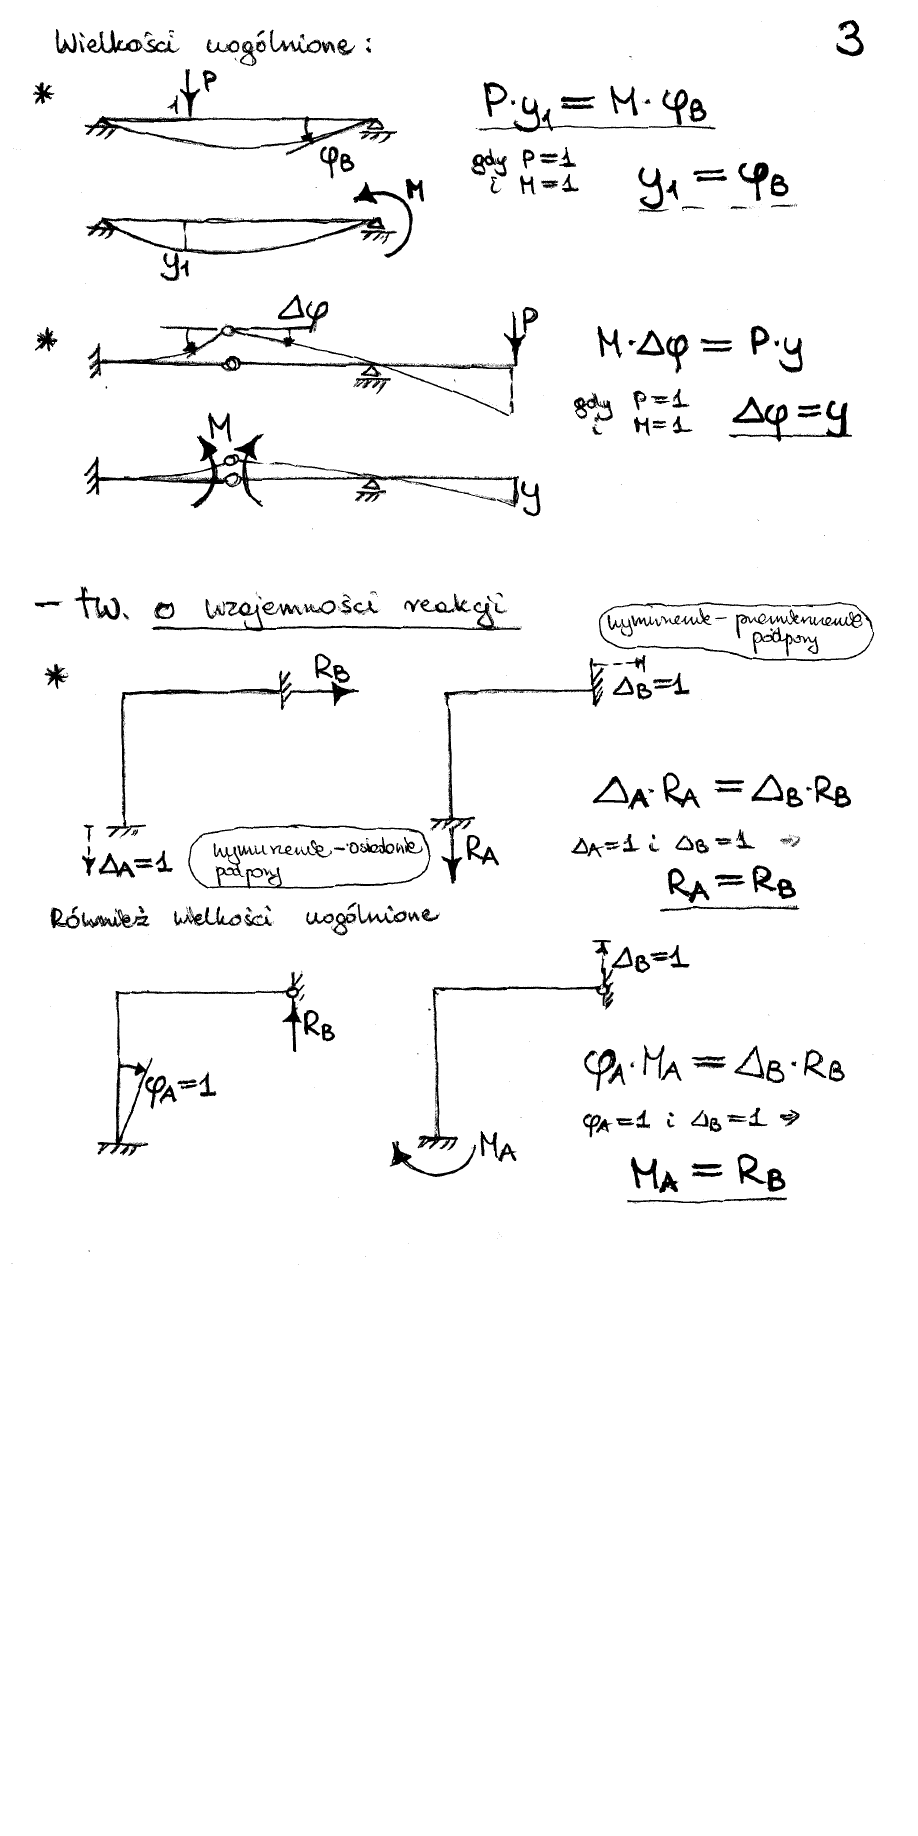 Wielkości uogólnione :
3
* P
1
φB
P·y1 = M·φB
gdy P=1
i M=1
y1 = φB
M
y1
* Δφ
P
M·Δφ = P·y
gdy P=1
i M=1
Δφ=y
M
y
- tw. o wzajemności reakcji
wymuszenie - przemieszczenie podpory
* RB
ΔB=1
ΔA·RA = ΔB·RB
ΔA=1 i ΔB=1 ⇒
RA = RB
ΔA=1
wymuszenie - osiadanie
podpory
RA
Również wielkości uogólnione
RB
φA=1
ΔB=1
MA
φA·MA = ΔB·RB
φA=1 i ΔB=1 ⇒
MA = RB